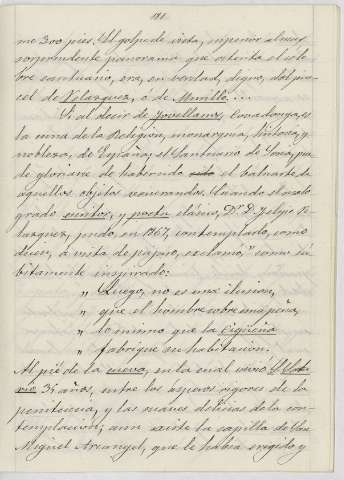 181.
mo 300 pies. El golpe de vista, superior al mas
sorprendente panorama que ostenta el cele-
bre santuario, era, en verdad, digno, del pin-
cel de Velazquez, ó de Murillo....
Si al decir de Jovellanos, Covadonga, es
la cuna de la Religion, monarquia, historia, y
nobleza, de España; el Santuario de pue-
de gloriarse de haber sido el baluarte de
aquellos objetos venerandos. Cuando el malo-
grado escritor, y poeta clásico, Dr. D. Felipe
Vazquez, pudo, en 1867, contemplarlo, como
decia, á vista de pajaro, exclamó, como sú-
bitamente inspirado:
" Luego, no es una ilusion,
" que el hombre sobre una peña,
" lo mismo que la cigüeña
" fabrique su habitacion.
Al pié de la cueva, en la cual vivió
34 años, entre los ásperos rigores de la
penitencia, y las suaves delicias de la con-
templacion; aun existe la capilla de San
Miguel Arcangel, que le habia erigido y